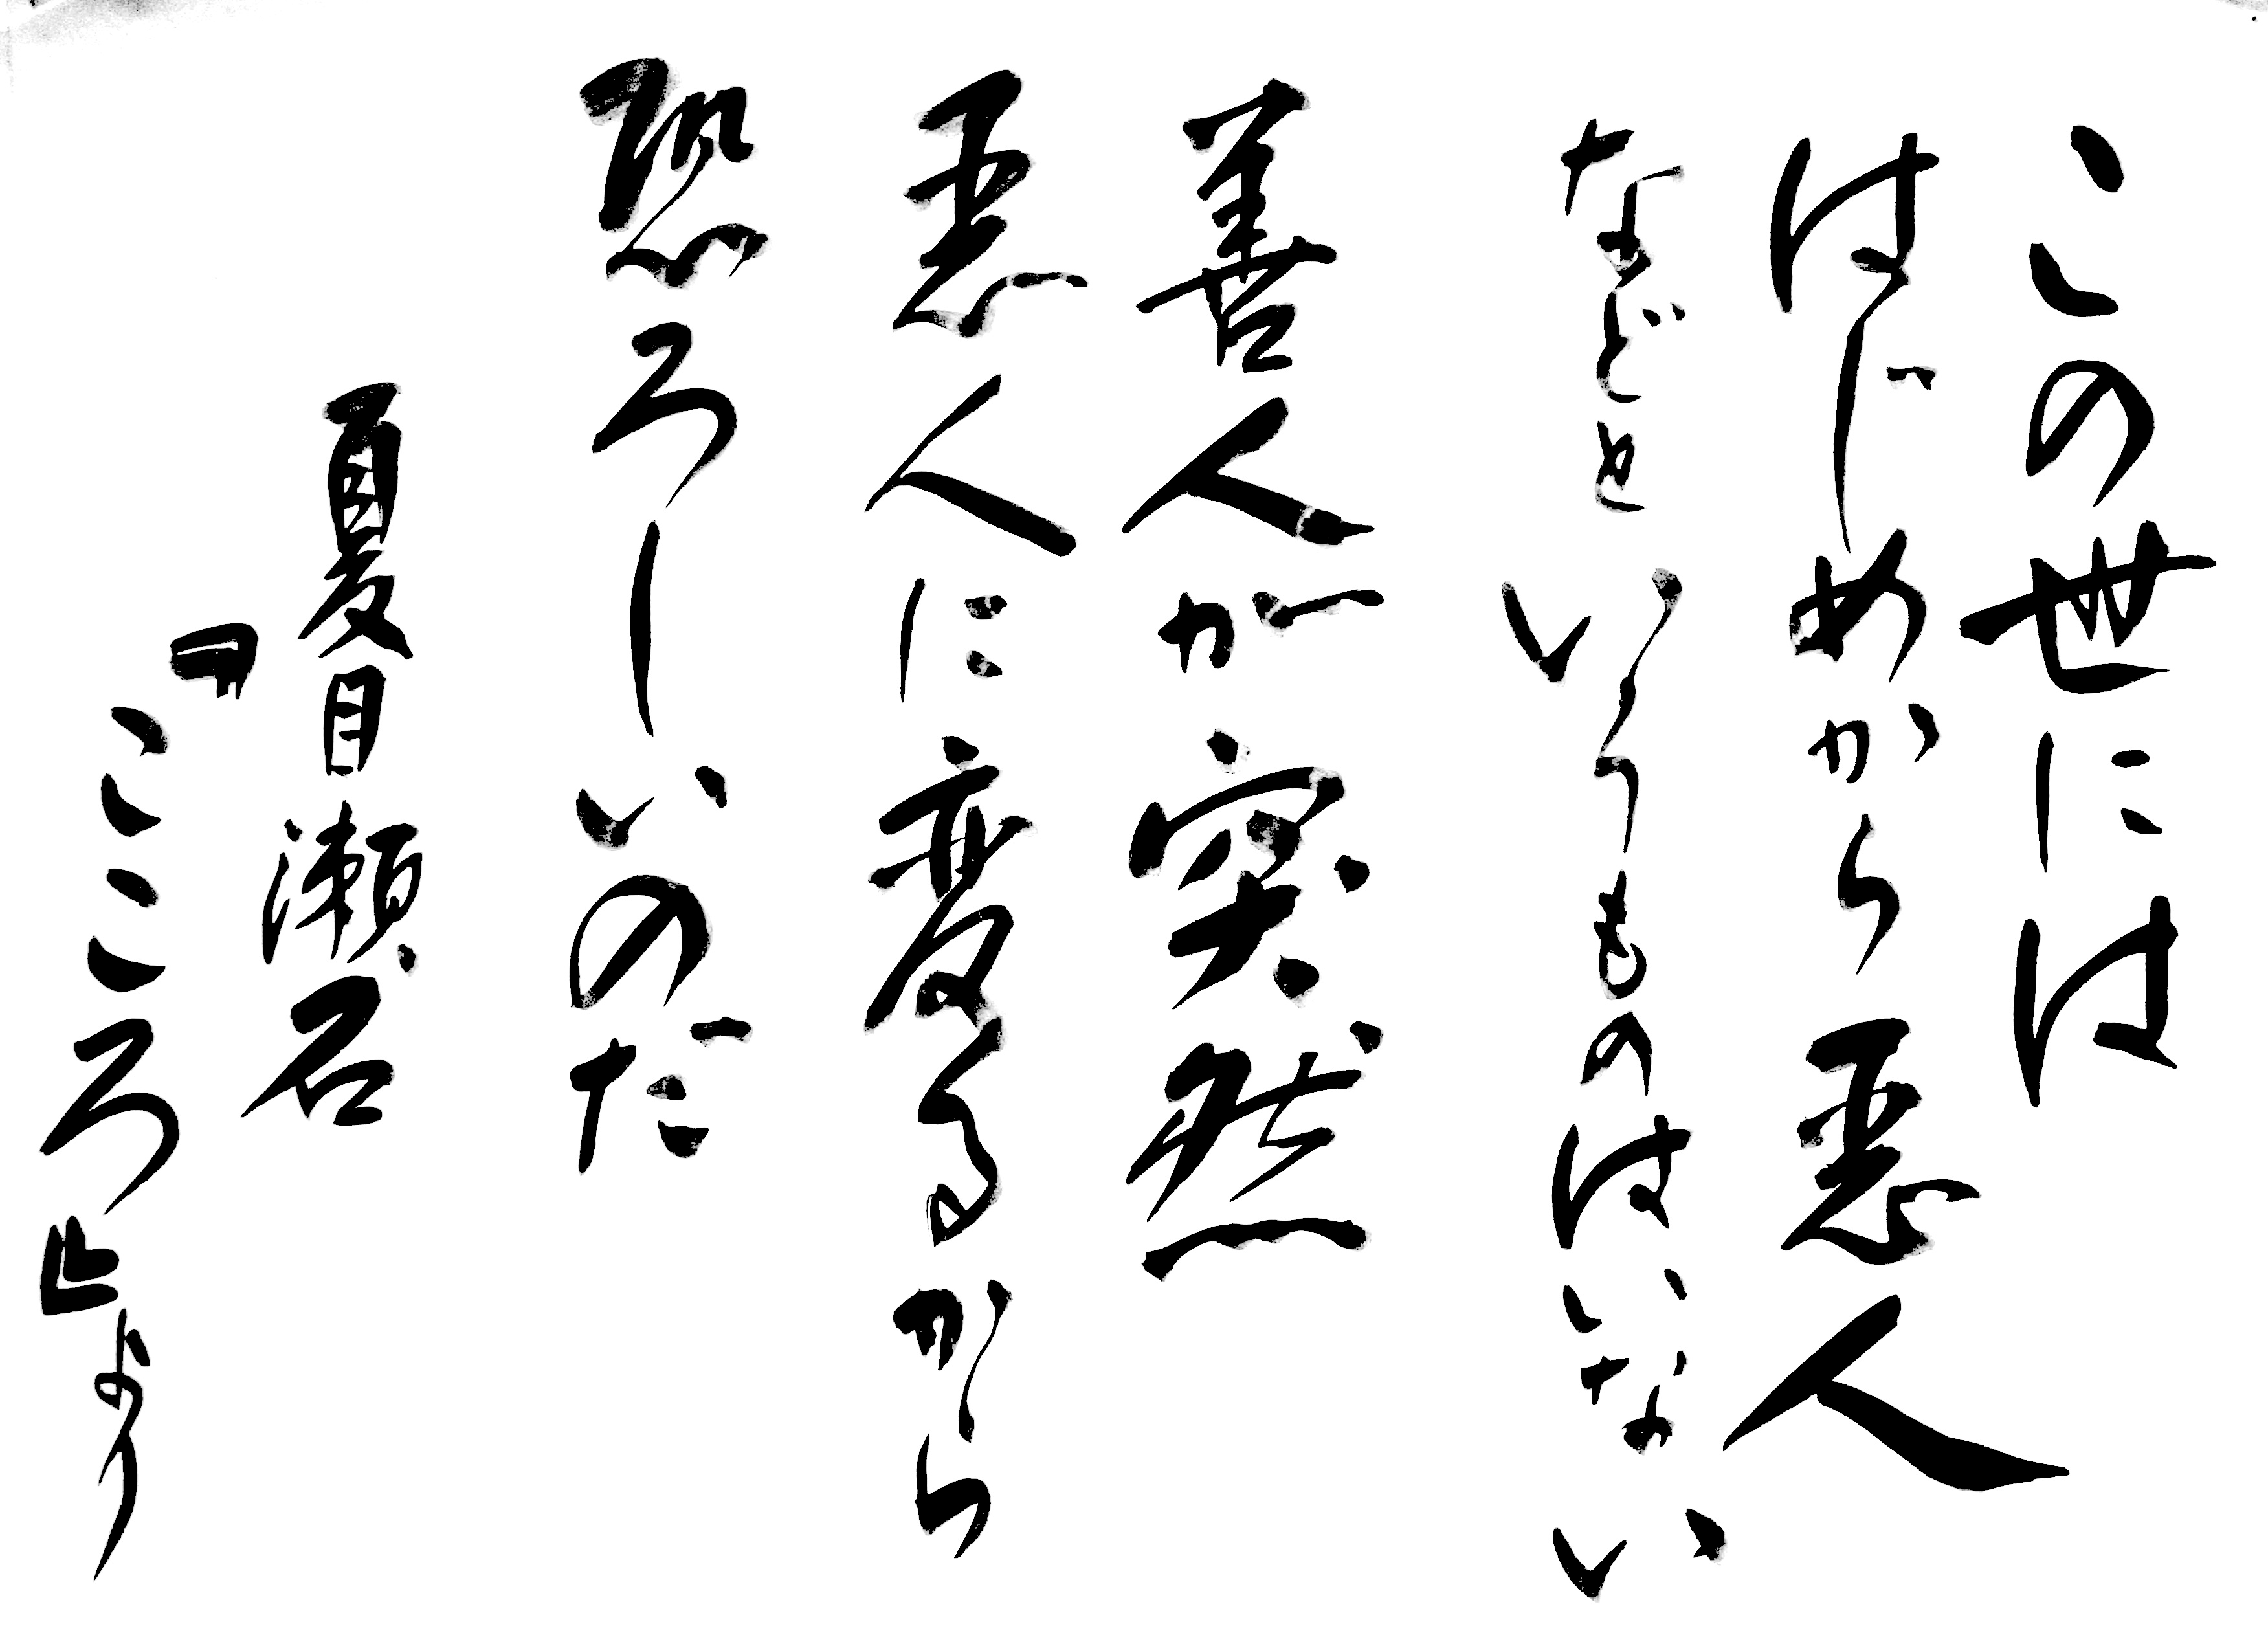 この世には
はじめから悪人
などというものはいない
善人が突然
悪人に変るから
恐ろしいのだ
夏目瀬石
『こころ』より